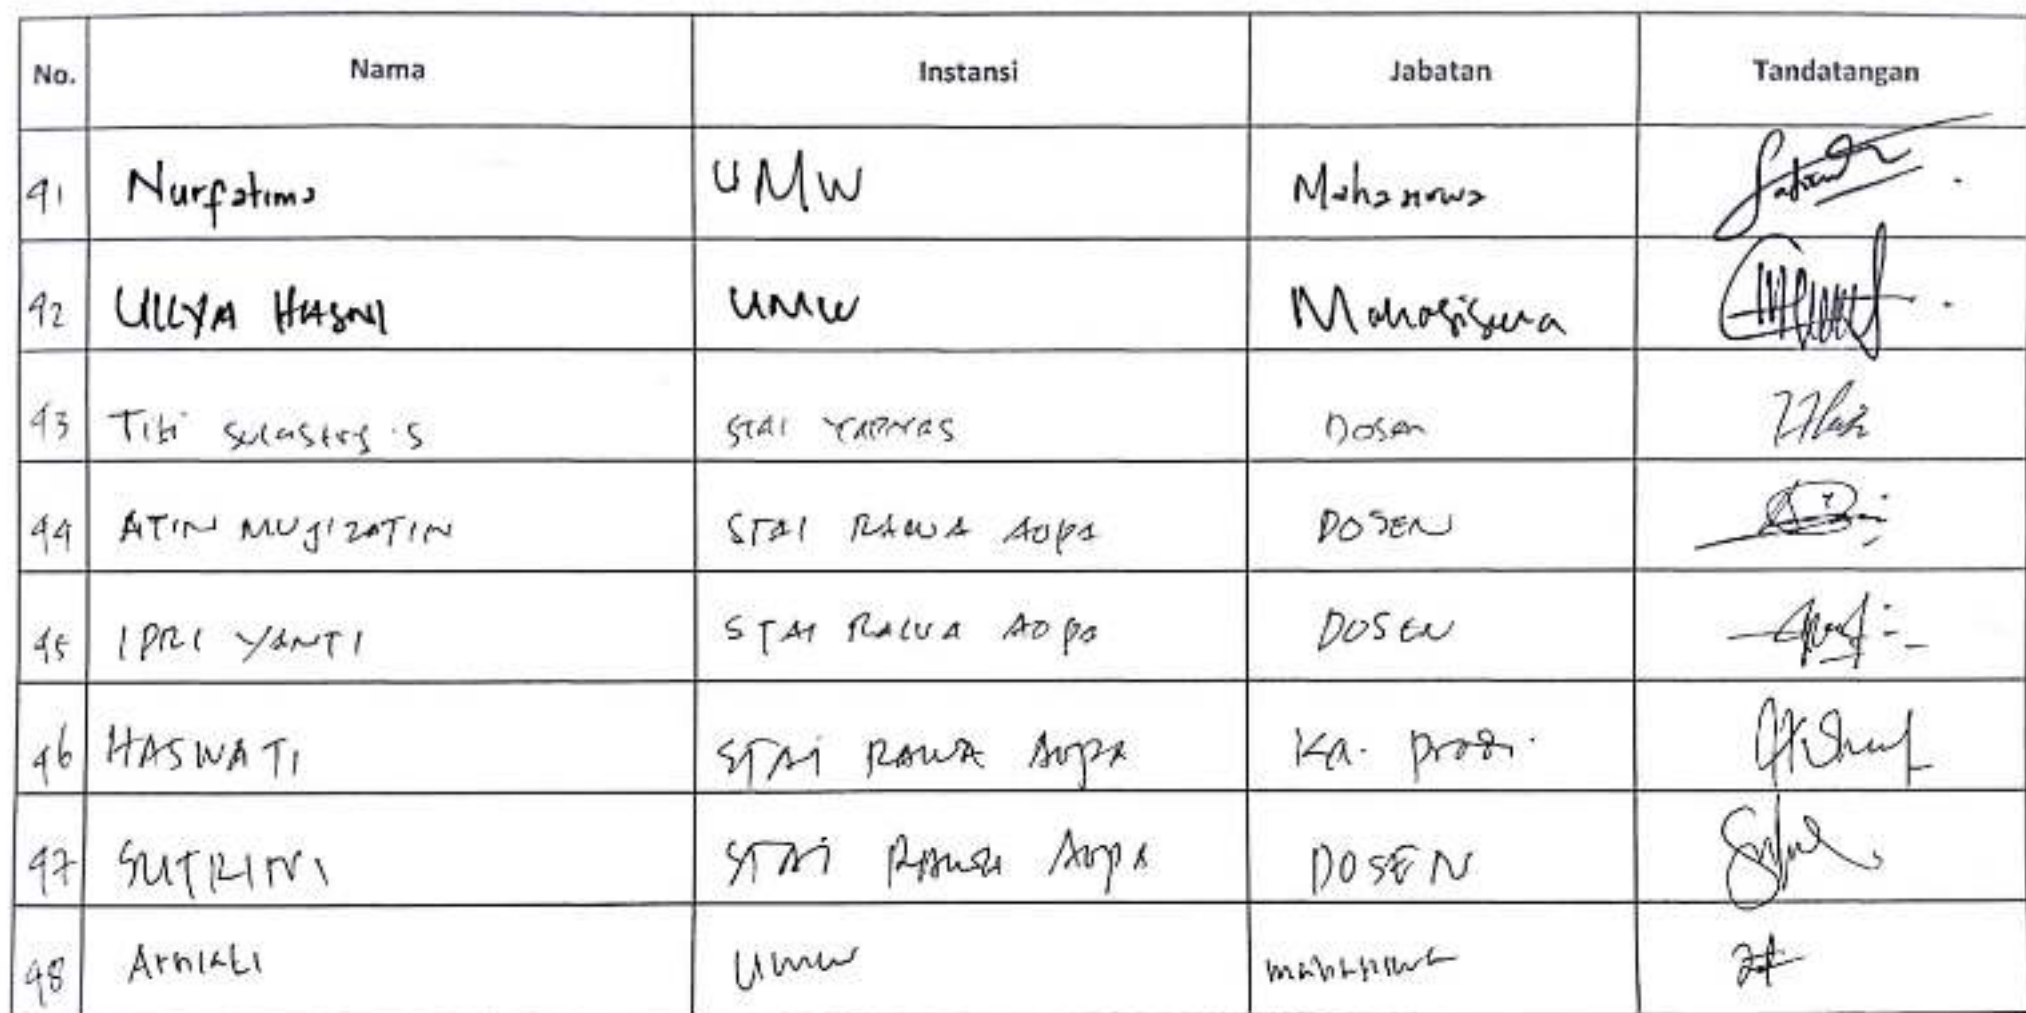 No. Nama Instansi Jabatan Tandatangan
41 Nurfatima UMW Mahasiswa
42 ULLYA HASNI UMW Mahasiswa
43 Titi sulastri s STAI YAPNAS Dosen
44 ATIN MUJIZATIN STAI RAWA AOPA DOSEN
45 IPRI YANTI STAI RAWA AOPA DOSEN
46 HASWATI STAI RAWA AOPA Ka. prodi
47 SUTRINI STAI RAWA AOPA DOSEN
48 UMW mahasiswa